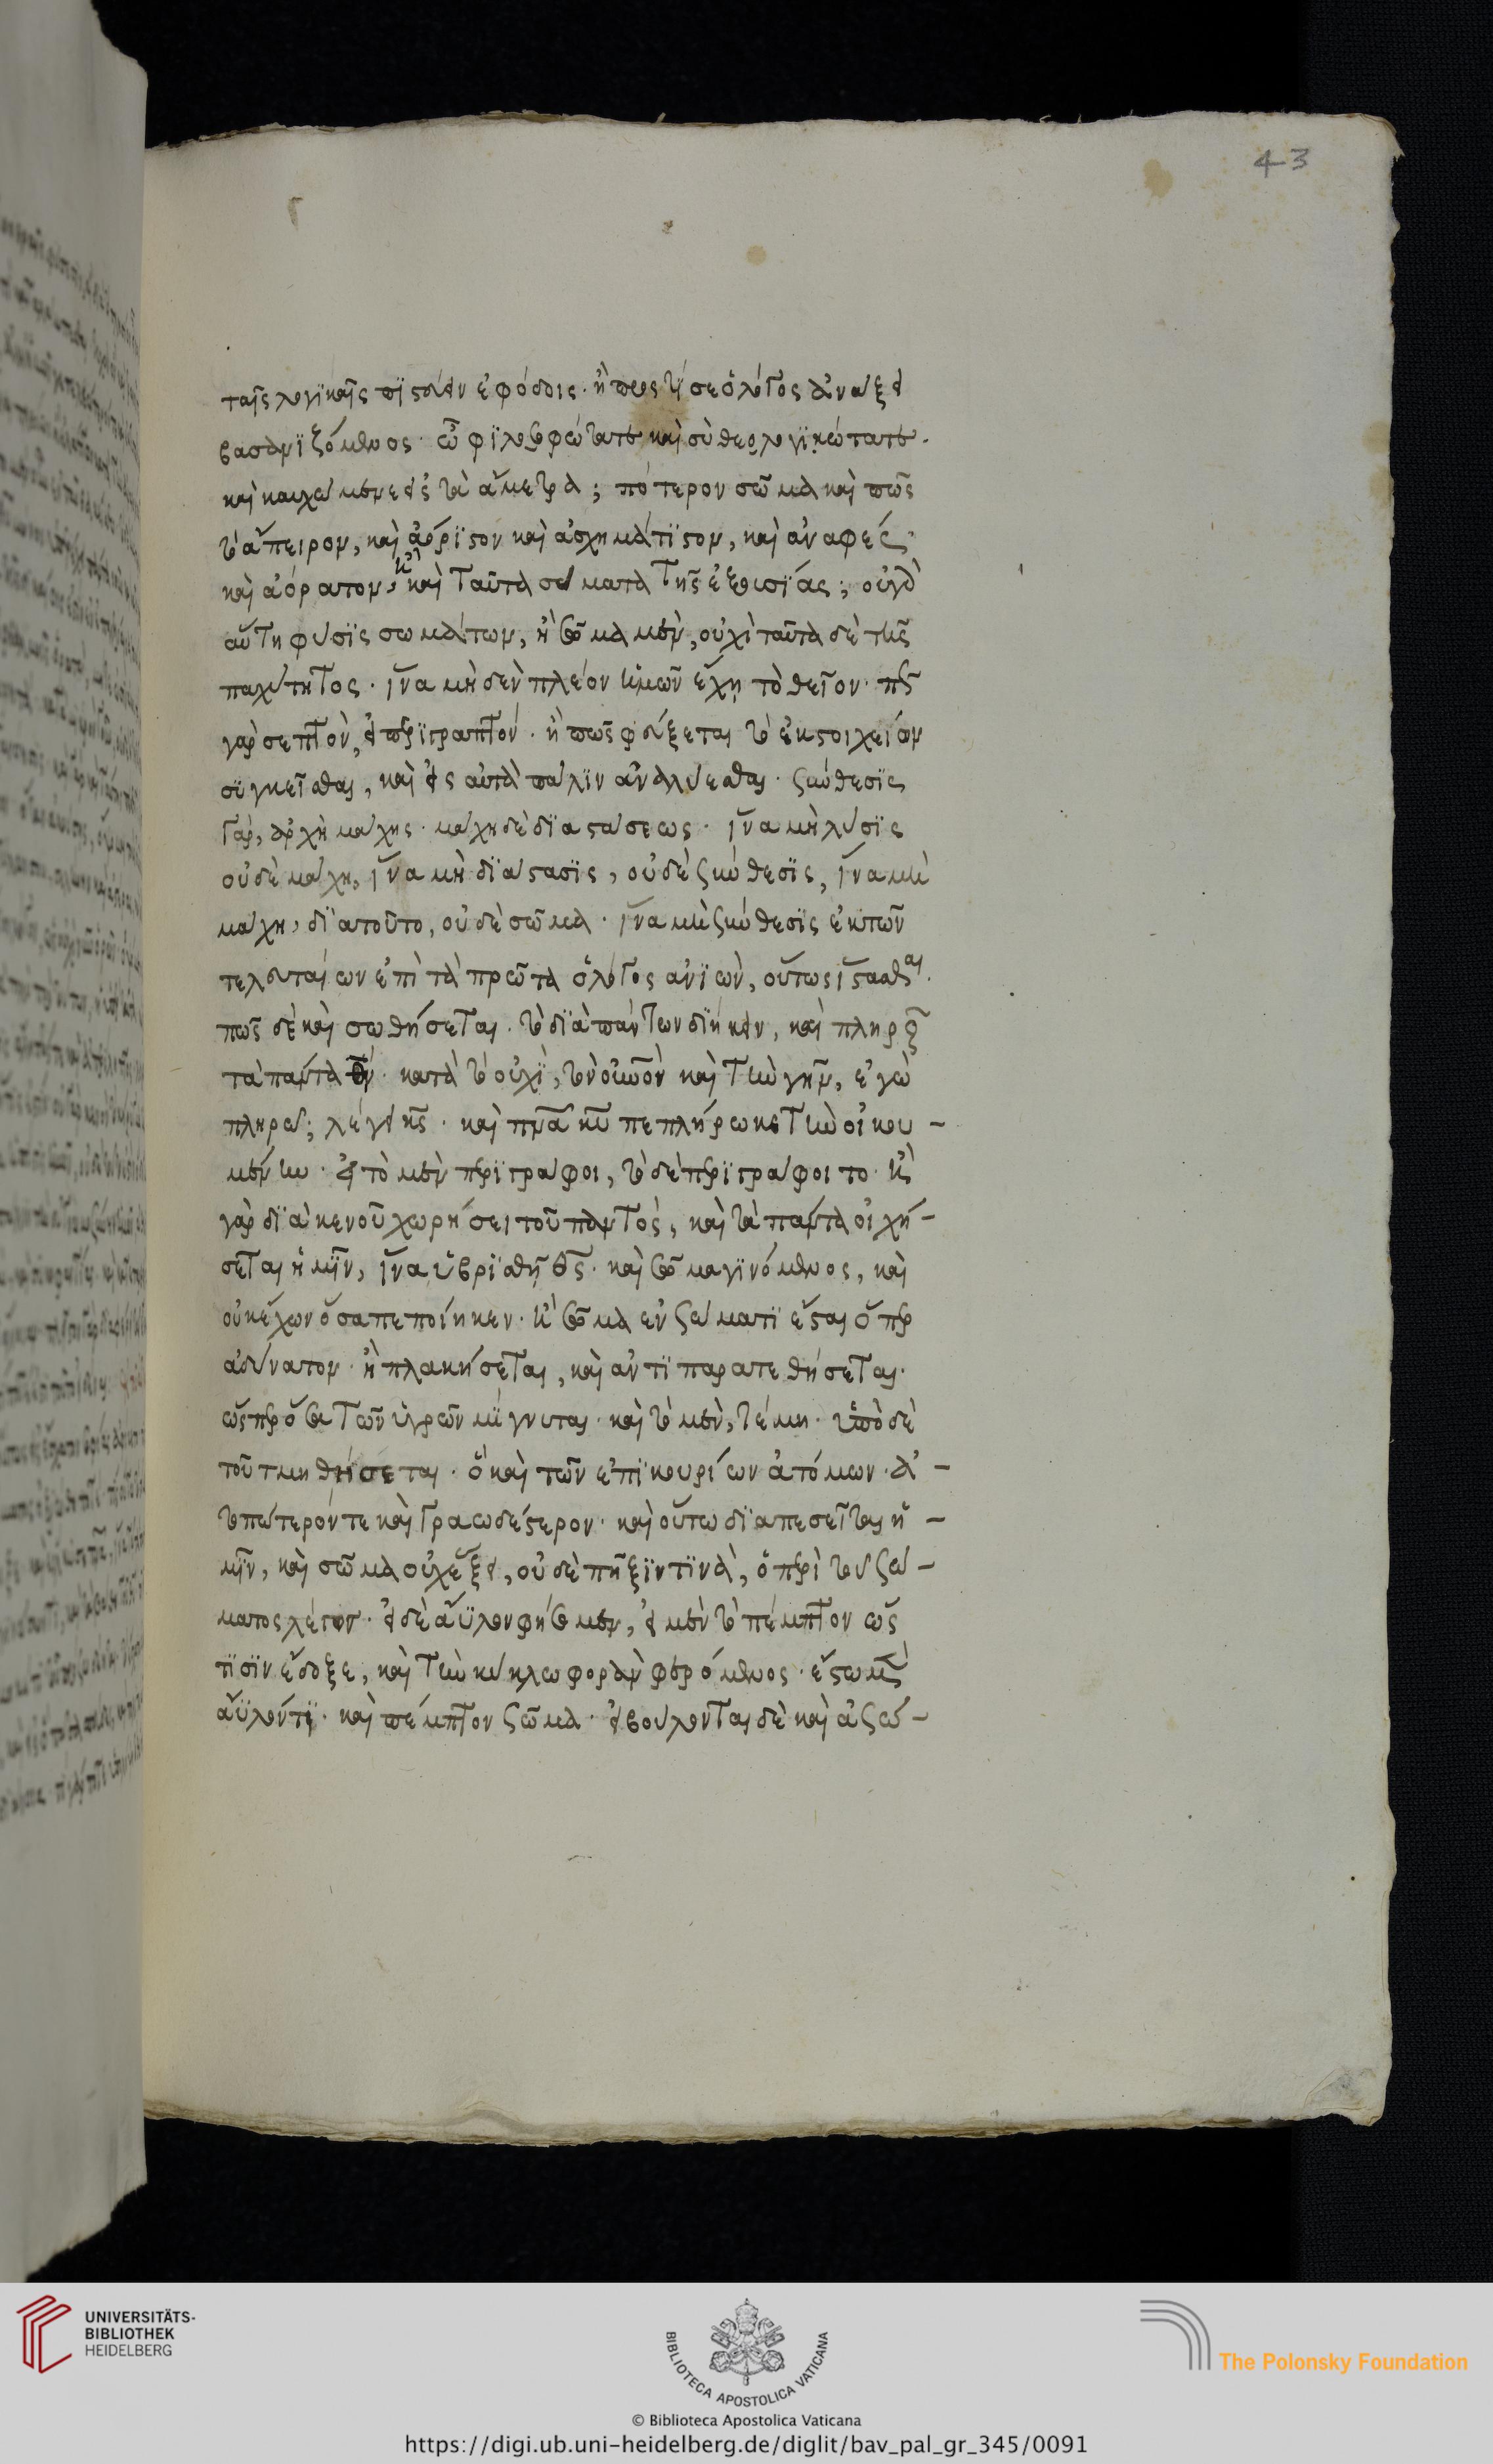 43
ταῖς λογϊκαῖς πϊστεύειν ἐφόδοις. ἢ πως τί σε ὁ λόγος ἀνάξει
βασανϊζόμενος. ὦ φϊλοσοφώτατε καὶ σὺ θεολογϊκώτατε.
καὶ καυχώμενε εἰς τὰ ἄμετρα; πότερον σῶμα καὶ πῶς
τὸ ἄπειρον, καὶ ἀόρϊστον καὶ ἀσχημάτϊστον, καὶ ἀναφές.
καὶ ἀόρατον, ἢ καὶ ταῦτα σώματα τῆς ἐξουσϊάς; οὐ γὰρ
αὕτη φύσϊς σωμάτων, ἢ σῶμα μὲν, οὐχὶ ταῦτα δὲ τῆς
παχύτητος. ἵνα μηδὲν πλέον ἡμῶν ἔχῃ τὸ θεῖον. πῶς
γὰρ σεπτὸν, εἰ περϊγραπτόν. ἢ πῶς φεύξεται τὸ ἐκ στοιχείων
συγκεῖσθαι, καὶ εἰς αὐτὰ πάλϊν ἀναλύεσθαι. συνθεσϊς
γὰρ, ἀρχὴ μάχης. μάχη δὲ δϊαστάσεως. ἵνα μὴ λύσϊς
οὐδὲ μάχη, ἵνα μὴ δϊάστασϊς, οὐδὲ σύνθεσϊς, ἵνα μὴ
μάχη, δϊατοῦτο, οὐδὲ σῶμα. ἵνα μὴ σύνθεσϊς ἐκ τῶν
τελευταίων ἐπὶ τὰ πρῶτα ὁ λόγος ἀνϊὼν, οὕτως ἵστασθαι.
πῶς δὲ καὶ σωθήσεται. τὸ δϊὰ πάντων δϊήκειν, καὶ πληροῦν
τὰ πάντα θν. κατὰ τὸ οὐχϊ, τὸν οὐνὸν καὶ τὴν γῆν, ἐγὼ
πληρῶ; λέγει κς. καὶ πνα κυ πεπλήρωκε τὴν οἰκου-
μένην. εἰ τὸ μὲν περϊγράφοι, τὸ δὲ περϊγράφοιτο. ἢ
γὰρ δϊὰ κενοῦ χωρήσει τοῦ παντὸς, καὶ τὰ πάντα οἰχή-
σεται ἡμῖν, ἵνα ὑβρϊσθῇ θς. καὶ σῶμα γϊνόμενος, καὶ
οὐκ ἔχων ὅσα πεποίηκεν. ἢ σῶμα ἐν σώματϊ ἔσται ὅπερ
ἀδύνατον. ἢ πλακήσεται, καὶ ἀντϊπαρατεθήσεται.
ὥσπερ ὅσα τῶν ὑγρῶν μίγνυται. καὶ τὸ μὲν, τέμη. ὑπὸ δὲ
τοῦ τμηθήσεται. ὃ καὶ τῶν ἐπϊκουρίων ἀτόμων. ἀ-
τοπώτερόν τε καὶ γραωδέστερον. καὶ οὕτω δϊαπεσεῖται ἡ-
μῖν, καὶ σῶμα οὐχ ἕξει, οὐδὲ πῆξϊν τϊνὰ, ὁ περὶ τοῦ σώ-
ματος λόγος. εἰ δὲ ἄϋλον φήσομεν, εἰ μὲν τὸ πέμπτον ὥς
τϊσϊν ἔδοξε, καὶ τὴν κύκλω φορὰν φερόμενος. ἔστω μὲν
ἄϋλόν τϊ. καὶ πέμπτον σῶμα. εἰ βούλονται δὲ καὶ ἀσώ-
UNIVERSITÄTS-
BIBLIOTHEK
HEIDELBERG
BIBLIOTECA APOSTOLICA VATICANA
The Polonsky Foundation
© Biblioteca Apostolica Vaticana
https://digi.ub.uni-heidelberg.de/diglit/bav_pal_gr_345/0091